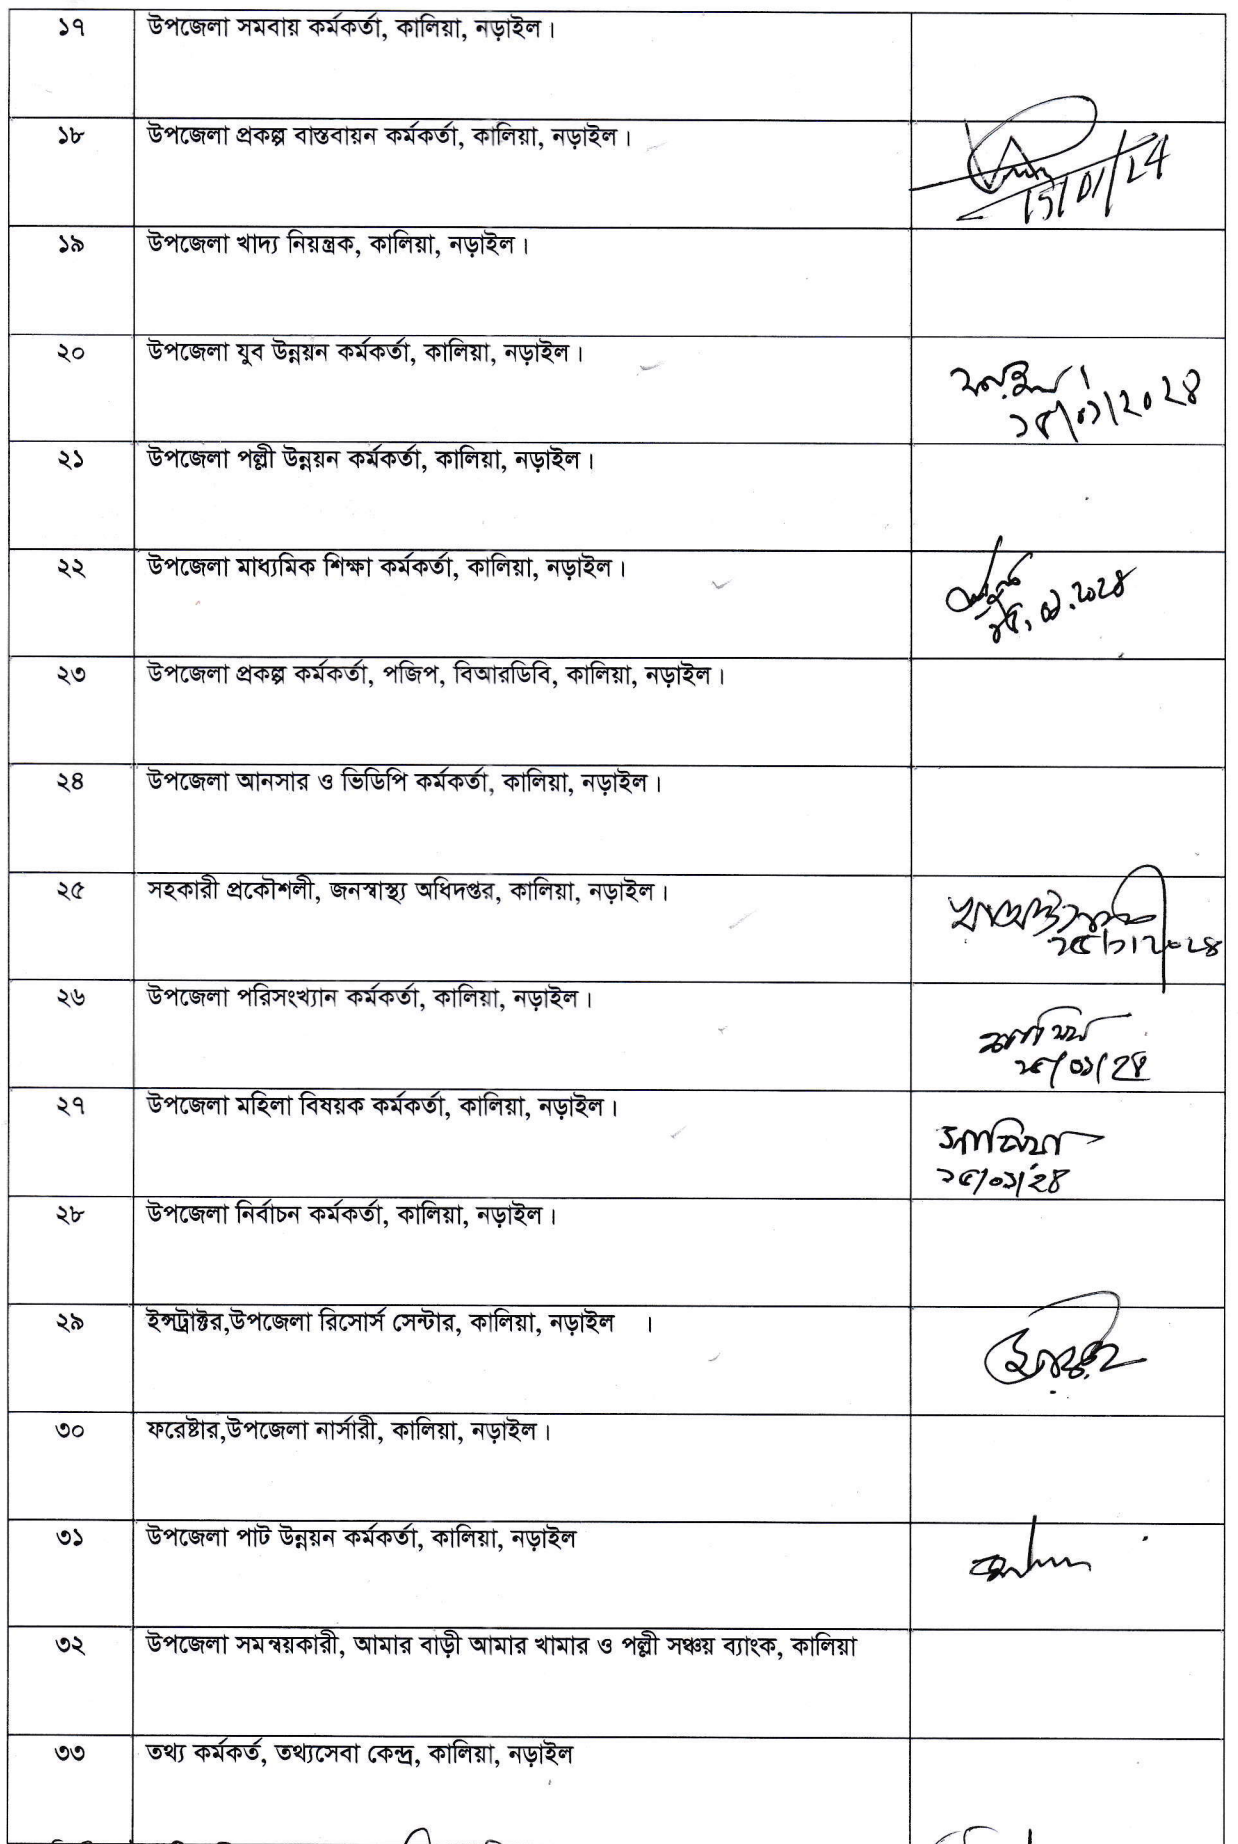 ১৭ উপজেলা সমবায় কর্মকর্তা, কালিয়া, নড়াইল।
১৮ উপজেলা প্রকল্প বাস্তবায়ন কর্মকর্তা, কালিয়া, নড়াইল।
15/01/24
১৯ উপজেলা খাদ্য নিয়ন্ত্রক, কালিয়া, নড়াইল।
২০ উপজেলা যুব উন্নয়ন কর্মকর্তা, কালিয়া, নড়াইল।
১৫/০১/২০২৪
২১ উপজেলা পল্লী উন্নয়ন কর্মকর্তা, কালিয়া, নড়াইল।
২২ উপজেলা মাধ্যমিক শিক্ষা কর্মকর্তা, কালিয়া, নড়াইল।
১৫.০১.২০২৪
২৩ উপজেলা প্রকল্প কর্মকর্তা, পজিপ, বিআরডিবি, কালিয়া, নড়াইল।
২৪ উপজেলা আনসার ও ভিডিপি কর্মকর্তা, কালিয়া, নড়াইল।
২৫ সহকারী প্রকৌশলী, জনস্বাস্থ্য অধিদপ্তর, কালিয়া, নড়াইল।
১৫/১/২০২৪
২৬ উপজেলা পরিসংখ্যান কর্মকর্তা, কালিয়া, নড়াইল।
১৫/০১/২৪
২৭ উপজেলা মহিলা বিষয়ক কর্মকর্তা, কালিয়া, নড়াইল।
১৫/০১/২৪
২৮ উপজেলা নির্বাচন কর্মকর্তা, কালিয়া, নড়াইল।
২৯ ইন্সট্রাক্টর,উপজেলা রিসোর্স সেন্টার, কালিয়া, নড়াইল ।
৩০ ফরেষ্টার,উপজেলা নার্সারী, কালিয়া, নড়াইল।
৩১ উপজেলা পাট উন্নয়ন কর্মকর্তা, কালিয়া, নড়াইল
৩২ উপজেলা সমন্বয়কারী, আমার বাড়ী আমার খামার ও পল্লী সঞ্চয় ব্যাংক, কালিয়া
৩৩ তথ্য কর্মকর্ত, তথ্যসেবা কেন্দ্র, কালিয়া, নড়াইল